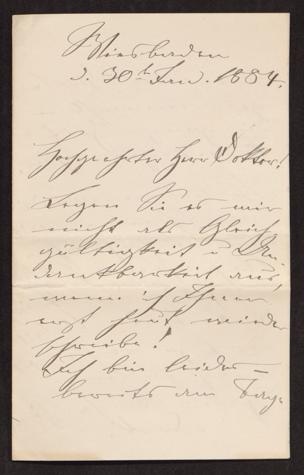 Wiesbaden
d. 30t Jan. 1884.
Hochgeehrter Herr Doktor!
Legen Sie es mir
nicht als Gleich
gültigkeit u Un
dankbarkeit aus,
wenn ich Ihnen
erst heut wieder
schreibe!
Ich bin leider
bereits am Tage